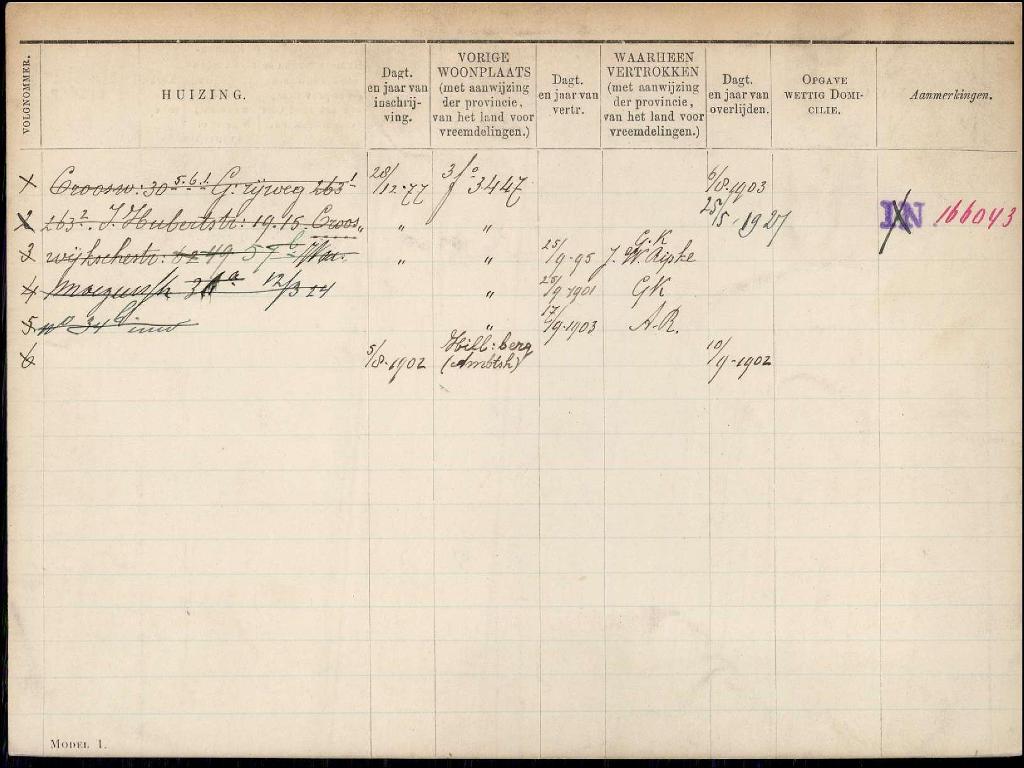 VOLGNOMMER.
HUIZING.
Dagt. en jaar van inschrijving.
VORIGE WOONPLAATS (met aanwijzing der provincie, van het land voor vreemdelingen.)
Dagt. en jaar van vertr.
WAARHEEN VERTROKKEN (met aanwijzing der provincie, van het land voor vreemdelingen.)
Dagt. en jaar van overlijden.
OPGAVE WETTIG DOMICILIE.
Aanmerkingen.
1 Croosw: 30 5.6.1. G: rijweg 263 1 28/12-77 3 fo 3447 6/8-1903
2 263 2. J. Hubertstr: 19.15. Croos„ „ „ 25/5.1927 IN 166043
3 wijkschestr: 49 57 b „ „ 25/9-95 G.K
4 12/3 24 „ 25/9-1901 GK
5 no 34 b „ 17/9-1903 A.R.
6 5/8-1902 Hill:berg 10/9-1902
(Ambtsh)
MODEL 1.